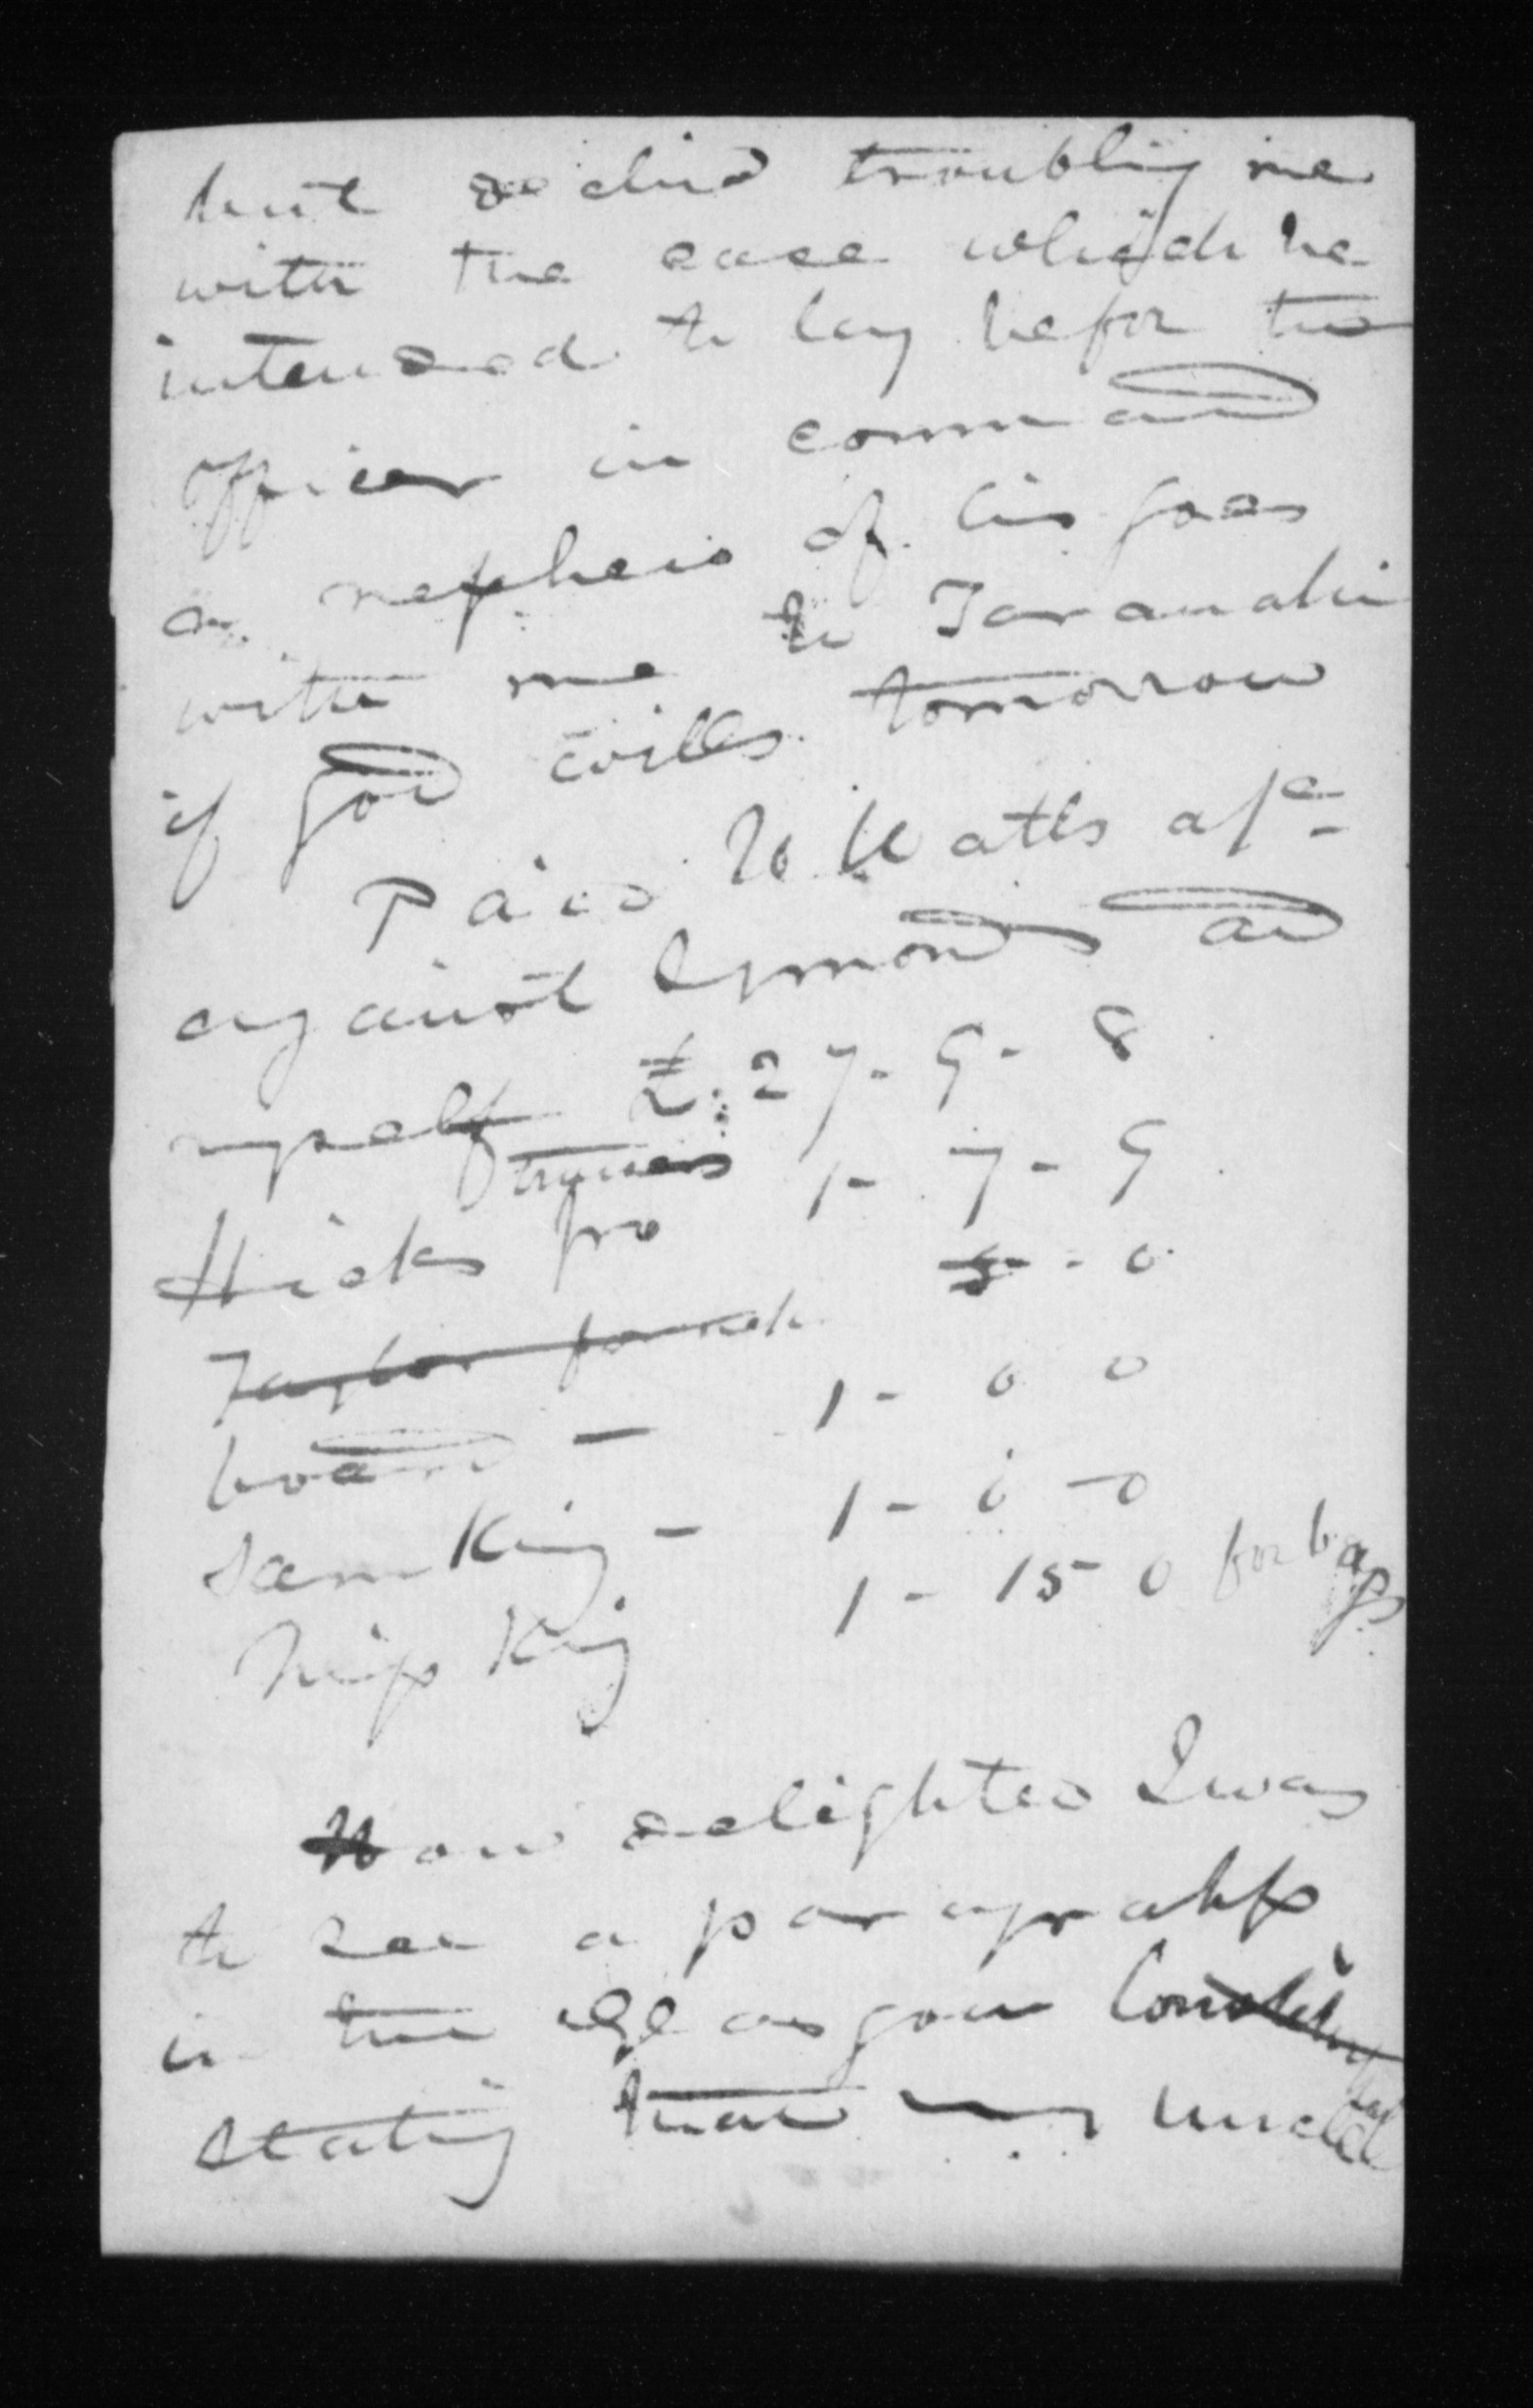 but declind troubling me
with the case which he
intended to lay befor the
Officer in command
a nephew of his goes
with me to Taranaki
if god wills tomorrow
Paid Watts a/c
against Symonds and
myself £27-9-8
trousers
Hicks pro 1-7-9
Taylor for 5-0
board - 1-0 0
Sam King - 1-0-0
King 1-15-0 for bags
How delighted I was
to see a paragraph
in the Glasgow
stating that my uncle